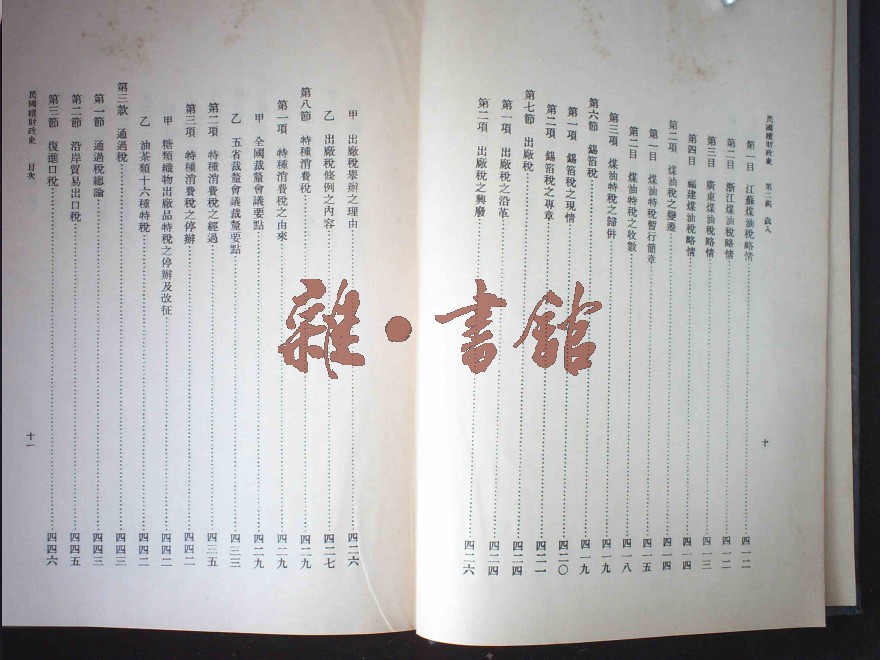 民國續財政史　第二編　歲入
第一目　江蘇煤油稅略情……四一二
第二目　浙江煤油稅略情……四一二
第三目　廣東煤油稅略情……四一三
第四目　福建煤油稅略情……四一四
第二項　煤油稅之變遷……四一四
第一目　煤油特稅暫行簡章……四一五
第二目　煤油特稅之收數……四一八
第三項　煤油特稅之歸併……四一九
第六節　錫箔稅……四一九
第一項　錫箔稅之現情……四二〇
第二項　錫箔稅之專章……四二一
第七節　出廠稅……四二四
第一項　出廠稅之沿革……四二四
第二項　出廠稅之興廢……四二六
十
甲　出廠稅舉辦之理由……四二六
乙　出廠稅條例之內容……四二七
第八節　特種消費稅……四二九
第一項　特種消費稅之由來……四二九
甲　全國裁釐會議要點……四二九
乙　五省裁釐會議裁釐要點……四三三
第二項　特種消費稅之經過……四三五
第三項　特種消費稅之停辦……四四二
甲　糖類織物出廠品特稅之停辦及改征……四四二
乙　油茶類十六種特稅……四四二
第三款　通過稅……四四三
第一節　通過稅總論……四四三
第二節　沿岸貿易出口稅……四四五
第三節　復進口稅……四四六
民國續財政史　目次
十一
雜·書館